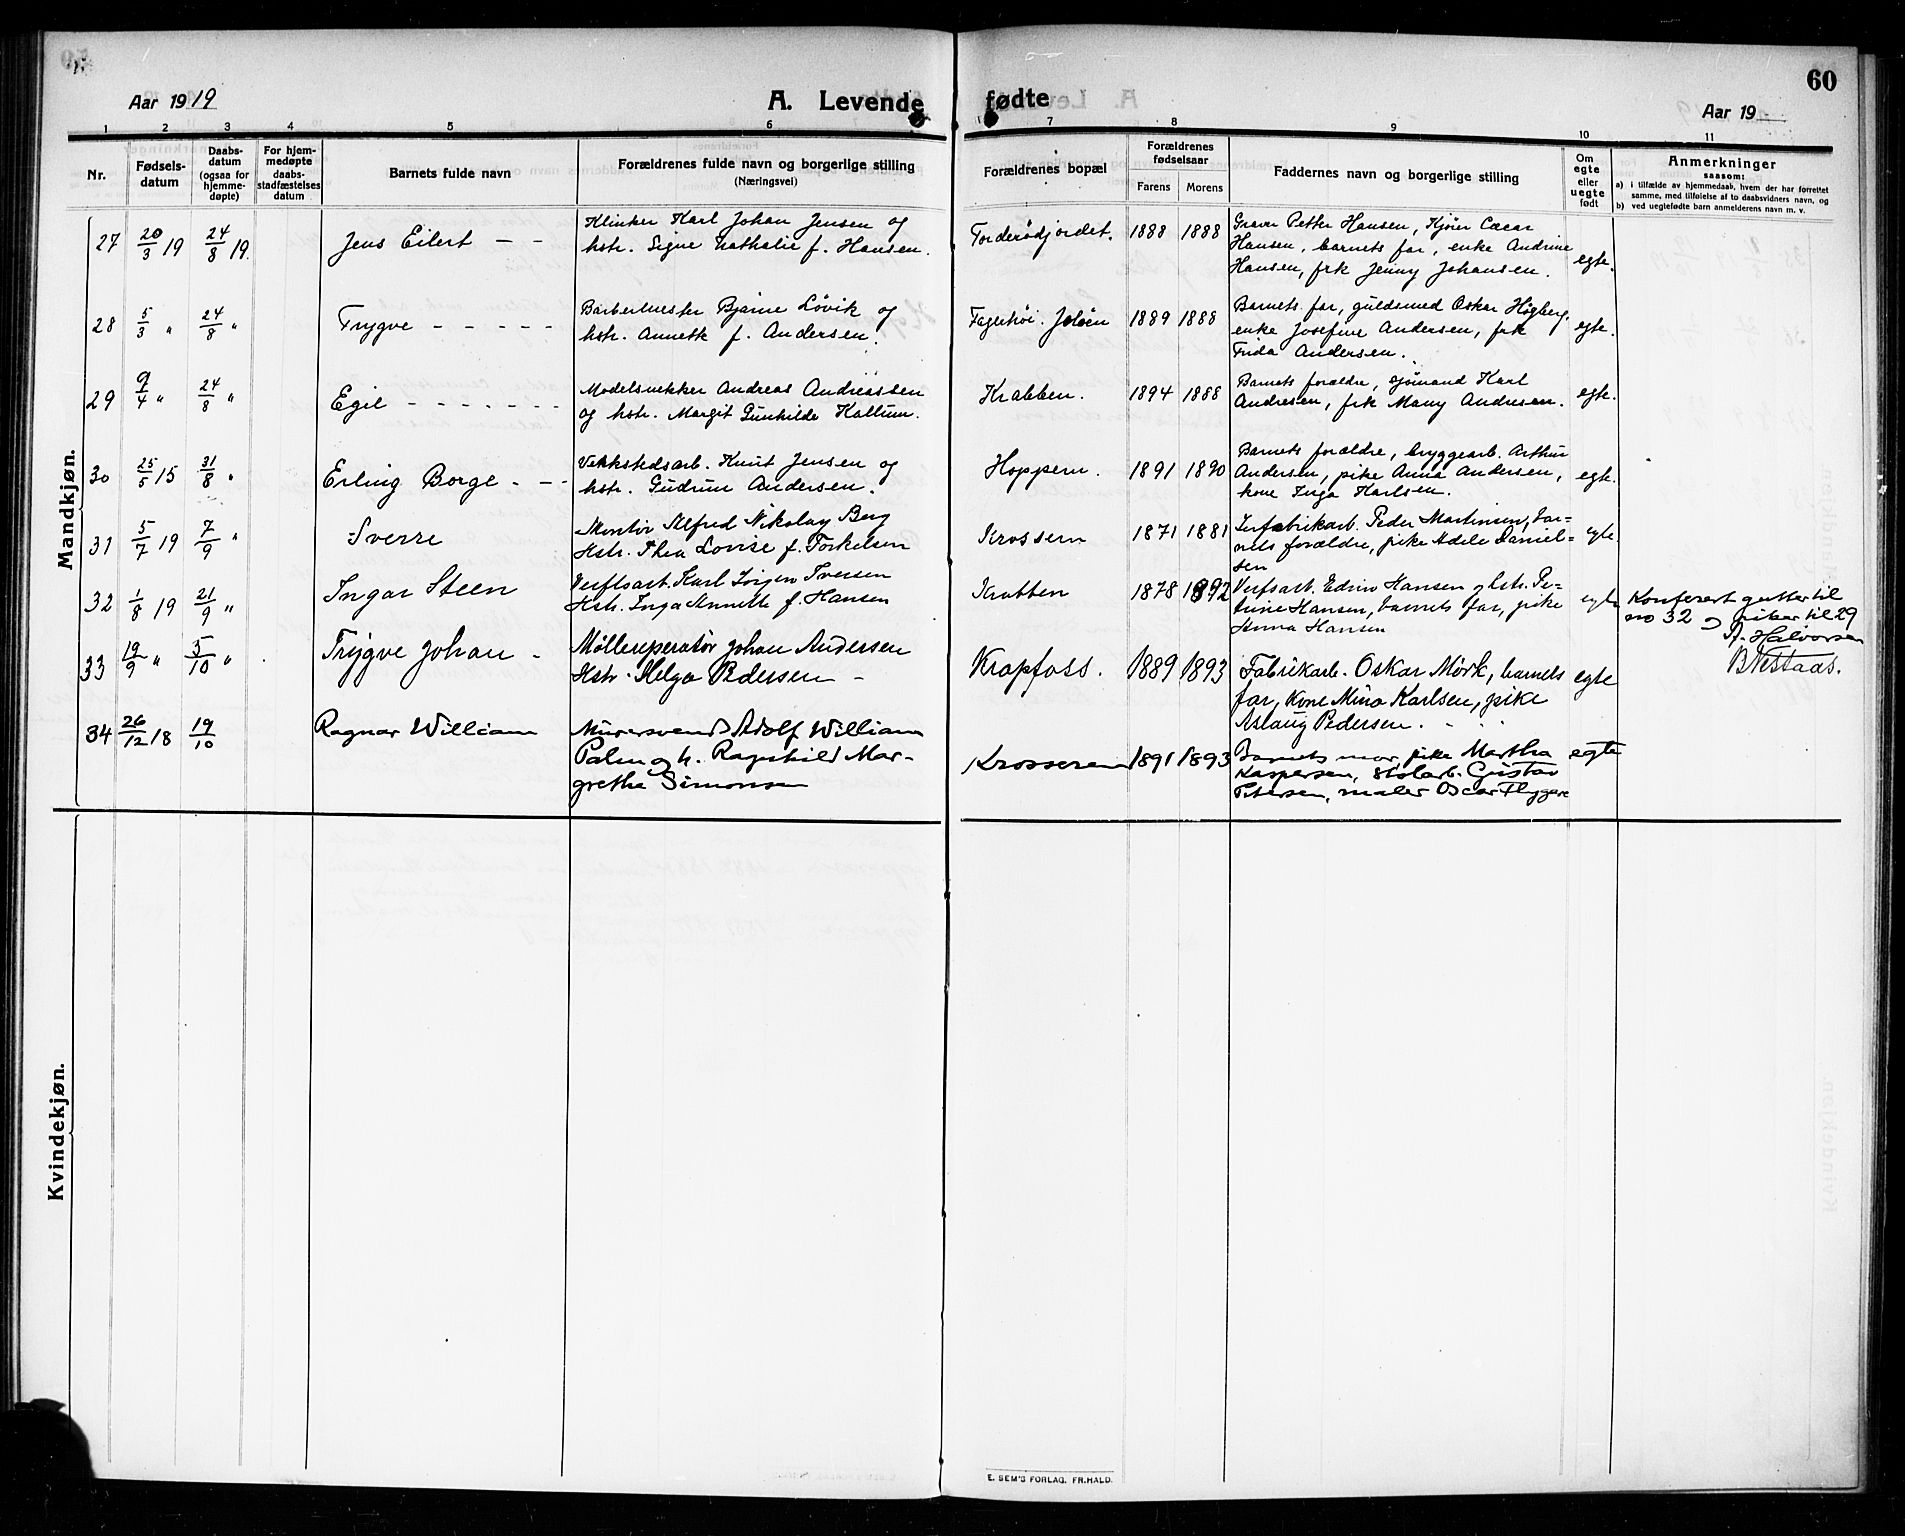 Aar 1919
A. Levende
fødte
60
Aar 19
1 2 3 4 5 6 7 8 9 10 11
Nr.
Fødsels-
datum
Daabs-
datum
(ogsaa for
hjemme-
døpte)
For hjem-
medøpte
daabs-
stadfæstelses
datum
Barnets fulde navn
Forældrenes fulde navn og borgerlige stilling
(Næringsvei)
Forældrenes bopæl
Forældrenes
fødselsaar
Farens Morens
Faddernes navn og borgerlige stilling
Om
egte
eller
uegte
født
Anmerkninger
saasom:
a) i tilfælde av hjemmedaab, hvem der har forrettet
samme, med tilføielse af to daabsvidners navn, og
b) ved uegtefødte barn anmelderens navn m. v.
Mandkjøn.
27 20/3 19 24/8 19. Jens Eilert - -
Klinker Karl Johan Jensen og
hstr. Signe Nathalie f. Hansen.
1888 1888
Graver Petter Hansen, Kjører Cæcar
Hansen, barnets far, enke Andrine
Hansen, frk Jenny Johansen.
egte.
28 5/3 " 24/8 " Trygve - - - - -
Barbermester Bjarne Løvik og
hstr. Annette f. Andersen.
Fagerhøi. Jeløen 1889 1888
Barnets far, guldsmed Oskar Högberg,
enke Josefine Andersen, frk
Frida Andersen.
egte.
29 9/4 " 24/8 " Egil - - - - - - -
Modelsnekker Andreas Andreassen
og hstr. Margit Gunhilde Kallum.
Krabben. 1894 1888
Barnets forældre, sjömand Karl
Andresen, frk Many Andresen.
egte.
30 25/5 15 31/8 " Erling Borge - -
Verkstedsarb. Knut Jensen og
hstr. Gudrun Andersen.
Hoppern. 1891 1890
Barnets forældre, bryggearb. Arthur
Andersen, pike Anna Andersen,
kone Inga Karlsen.
egte.
31 5/7 19 7/9 " Sverre
Montør Alfred Nikolay Berg
Hstr. Thea Lovise f. Torkelsen
Krossern 1871 1881
Peder Martinsen, bar=
nets forældre, pike Adele Daniel=
sen
egte
32 1/8 19 21/9 " Ingar Steen
Verftsarb. Karl Jörgen Iversen
Hstr. Inga Annette f. Hansen
Krabben 1878 1892
Verfsarb. Edvin Hansen og hstr. Pe-
trine Hansen, barnets far, pike
Anna Hansen
egte
Konferert gutter til
no 32 og piker til 29
A. Halvorsen
B Nestaas.
33 19/9 " 5/10 " Trygve Johan -
Mølleoperatør Johan Andersen
Hstr. Helga Pedersen -
Krapfoss. 1889 1893
Fabrikarb. Oskar Mørk, barnets
far, Kone Mina Karlsen, pike
Aslaug Pedersen.
egte
34 26/12 18 19/10 Ragnar William
Murersvend Adolf William
Palm og h. Ragnhild Mar-
grethe Simonsen
Krosseren 1891 1893
Barnets mor, pike Martha
Kaspersen, Gustav
Petersen, maler Oscar Flyggare
egte
Kvindekjøn.
E. SEM'S FORLAG, FR.HALD.